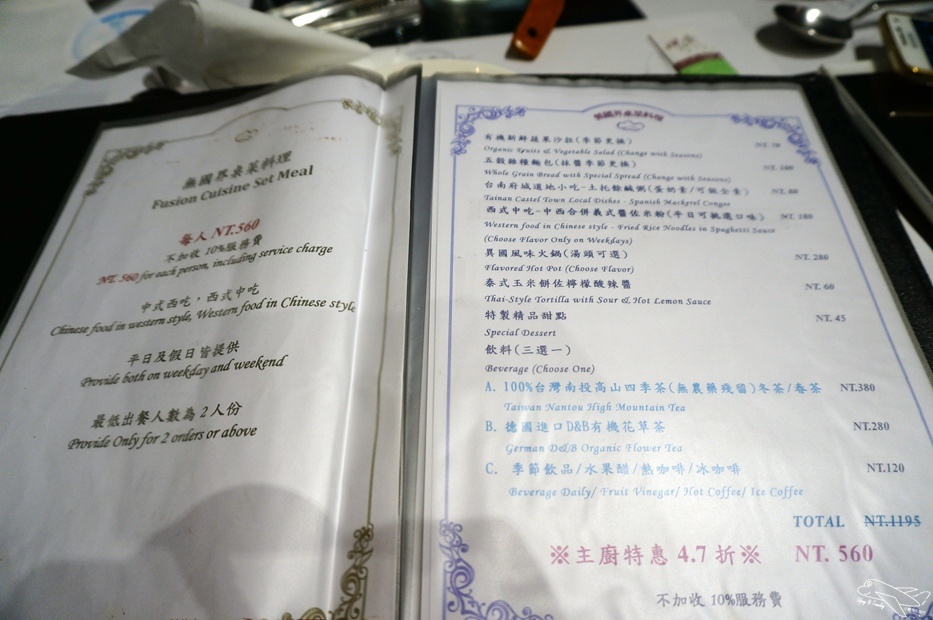 無國界桌菜料理
Fusion Cuisine Set Meal
每人 NT.560
不加收 10%服務費
NT. 560 for each person, including service charge
中式西吃，西式中吃
Chinese food in western style, Western food in Chinese style
平日及假日皆提供
Provide both on weekday and weekend
最低出餐人數為 2 人份
Provide Only for 2 orders or above
無國界桌菜料理
有機新鮮蔬果沙拉(季節更換)
Organic Fruits & Vegetable Salad (Change with Seasons) NT. 70
五穀雜糧麵包(抹醬季節更換) NT. 100
Whole Grain Bread with Special Spread (Change with Seasons)
台南府城道地小吃-土托餘鹹粥(蛋奶素/可做全素) NT. 80
Tainan Castel Town Local Dishes - Spanish Mackerel Congee
西式中吃-中西合併義式醬佐米粉(平日可挑選口味) NT. 180
Western food in Chinese style - Fried Rice Noodles in Spaghetti Sauce
(Choose Flavor Only on Weekdays)
異國風味火鍋(湯頭可選) NT. 280
Flavored Hot Pot (Choose Flavor)
泰式玉米餅佐檸檬酸辣醬 NT. 60
Thai-Style Tortilla with Sour & Hot Lemon Sauce
特製精品甜點 NT. 45
Special Dessert
飲料(三選一)
Beverage (Choose One)
A. 100%台灣南投高山四季茶(無農藥殘留)冬茶/春茶 NT.380
Taiwan Nantou High Mountain Tea
B. 德國進口D&B有機花草茶 NT.280
German D&B Organic Flower Tea
C. 季節飲品/水果醋/熱咖啡/冰咖啡 NT.120
Beverage Daily/ Fruit Vinegar/ Hot Coffee/ Ice Coffee
TOTAL NT.1195
※主廚特惠 4.7 折※ NT. 560
不加收 10%服務費